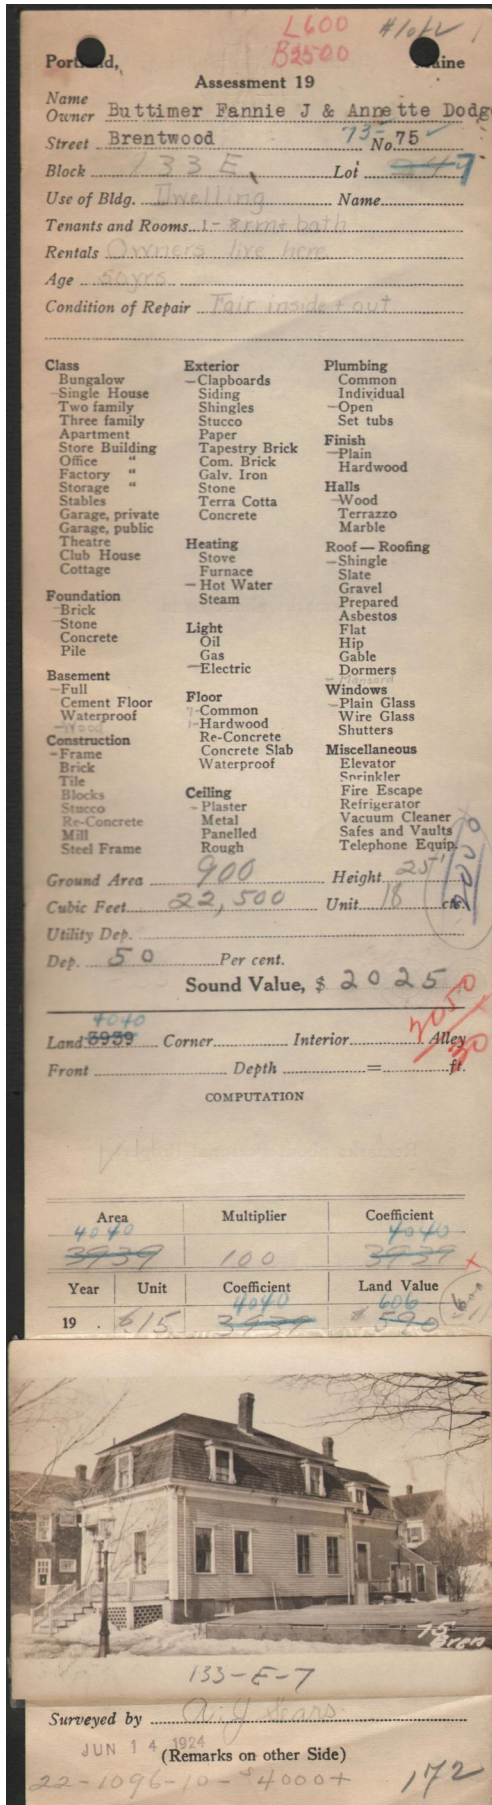 L600 #1 of 2
B2500
Portland, Maine
Assessment 19
Name
Owner Buttimer Fannie J & Annette Dodge
Street Brentwood 75- No. 75
Block 133 E Lot 7
Use of Bldg. Dwelling Name
Tenants and Rooms 1 - 8 rm + bath
Rentals Owners live here
Age 50 yrs
Condition of Repair Fair inside + out
Class
Bungalow
-Single House
Two family
Three family
Apartment
Store Building
Office "
Factory "
Storage "
Stables
Garage, private
Garage, public
Theatre
Club House
Cottage
Foundation
-Brick
-Stone
Concrete
Pile
Basement
-Full
Cement Floor
Waterproof
-Wood
Construction
-Frame
Brick
Tile
Blocks
Stucco
Re-Concrete
Mill
Steel Frame
Exterior
-Clapboards
Siding
Shingles
Stucco
Paper
Tapestry Brick
Com. Brick
Galv. Iron
Stone
Terra Cotta
Concrete
Heating
Stove
Furnace
-Hot Water
Steam
Light
Oil
Gas
-Electric
Floor
7-Common
1-Hardwood
Re-Concrete
Concrete Slab
Waterproof
Ceiling
-Plaster
Metal
Panelled
Rough
Plumbing
Common
Individual
-Open
Set tubs
Finish
-Plain
Hardwood
Halls
-Wood
Terrazzo
Marble
Roof — Roofing
-Shingle
Slate
Gravel
Prepared
Asbestos
Flat
Hip
Gable
Dormers
-Mansard
Windows
-Plain Glass
Wire Glass
Shutters
Miscellaneous
Elevator
Sprinkler
Fire Escape
Refrigerator
Vacuum Cleaner
Safes and Vaults
Telephone Equip.
2000
Ground Area 900 Height 25'
Cubic Feet 22,500 Unit 18 cts.
Utility Dep.
Dep. 50 Per cent.
Sound Value, $ 2025
2050
30
4040
Land 3939 Corner Interior Alley
Front Depth = ft.
COMPUTATION
Area Multiplier Coefficient
4040 4040
3939 100 3939
Year Unit Coefficient Land Value
4040 606
19 . $15 3939 $590
75
Bren
133-E-7
Surveyed by
JUN 14 1924
(Remarks on other Side)
22-1096-10-$4000+ 172